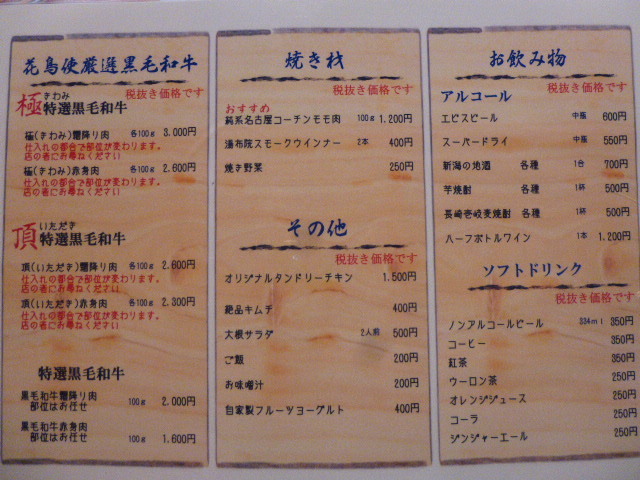 花鳥使厳選黒毛和牛
税抜き価格です
極 きわみ
特選黒毛和牛
極(きわみ)霜降り肉 各100g 3,000円
仕入れの都合で部位が変わります。
店の者にお尋ねください
極(きわみ)赤身肉 各100g 2,600円
仕入れの都合で部位が変わります。
店の者にお尋ねください
頂 いただき
特選黒毛和牛
頂(いただき)霜降り肉 各100g 2,600円
仕入れの都合で部位が変わります。
店の者にお尋ねください
頂(いただき)赤身肉 各100g 2,300円
仕入れの都合で部位が変わります。
店の者にお尋ねください
特選黒毛和牛
黒毛和牛霜降り肉
部位はお任せ 100g 2,000円
黒毛和牛赤身肉
部位はお任せ 100g 1,600円
焼き材
税抜き価格です
おすすめ
純系名古屋コーチンモモ肉 100g 1,200円
湯布院スモークウインナー 2本 400円
焼き野菜 250円
その他
税抜き価格です
オリジナルタンドリーチキン 1,500円
絶品キムチ 400円
大根サラダ 2人前 500円
ご飯 200円
お味噌汁 200円
自家製フルーツヨーグルト 400円
お飲み物
アルコール 税抜き価格です
エビスビール 中瓶 600円
スーパードライ 中瓶 550円
新潟の地酒 各種 1合 700円
芋焼酎 各種 1杯 500円
長崎壱岐麦焼酎 各種 1杯 500円
ハーフボトルワイン 1本 1,200円
ソフトドリンク
税抜き価格です
ノンアルコールビール 334ml 350円
コーヒー 350円
紅茶 350円
ウーロン茶 200円
オレンジジュース 200円
コーラ 200円
ジンジャーエール 200円